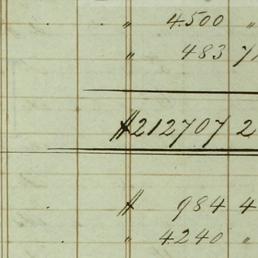 " 4.500 "
" 483 71
$212707 2
$ 984 4
" 4240 "